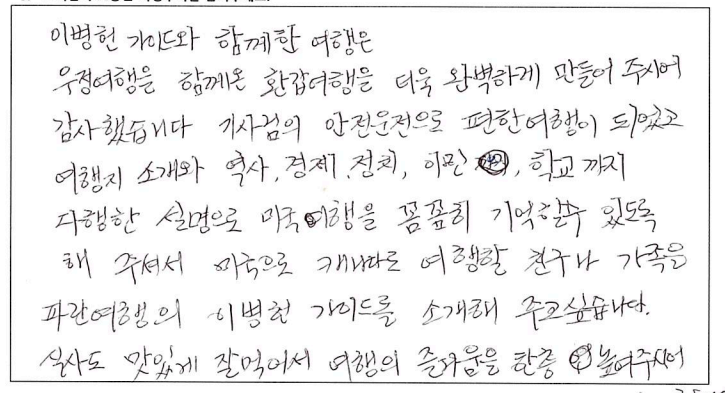 이병헌 가이드와 함께한 여행은
우정여행을 함께온 환갑여행을 더욱 완벽하게 만들어 주시어
감사했습니다 기사검의 안전운전으로 편한여행이 되었고
여행지 소개와 역사, 경제, 정치, 이민, 학교까지
다행한 설명으로 미국여행을 꼼꼼히 기억할수 있도록
해 주셔서 미국으로 캐나다로 여행할 친구나 가족을
파란여행의 이병헌 가이드를 소개해 주고싶습니다.
식사도 맛있게 잘먹어서 여행의 즐거움을 한층 높여주시어